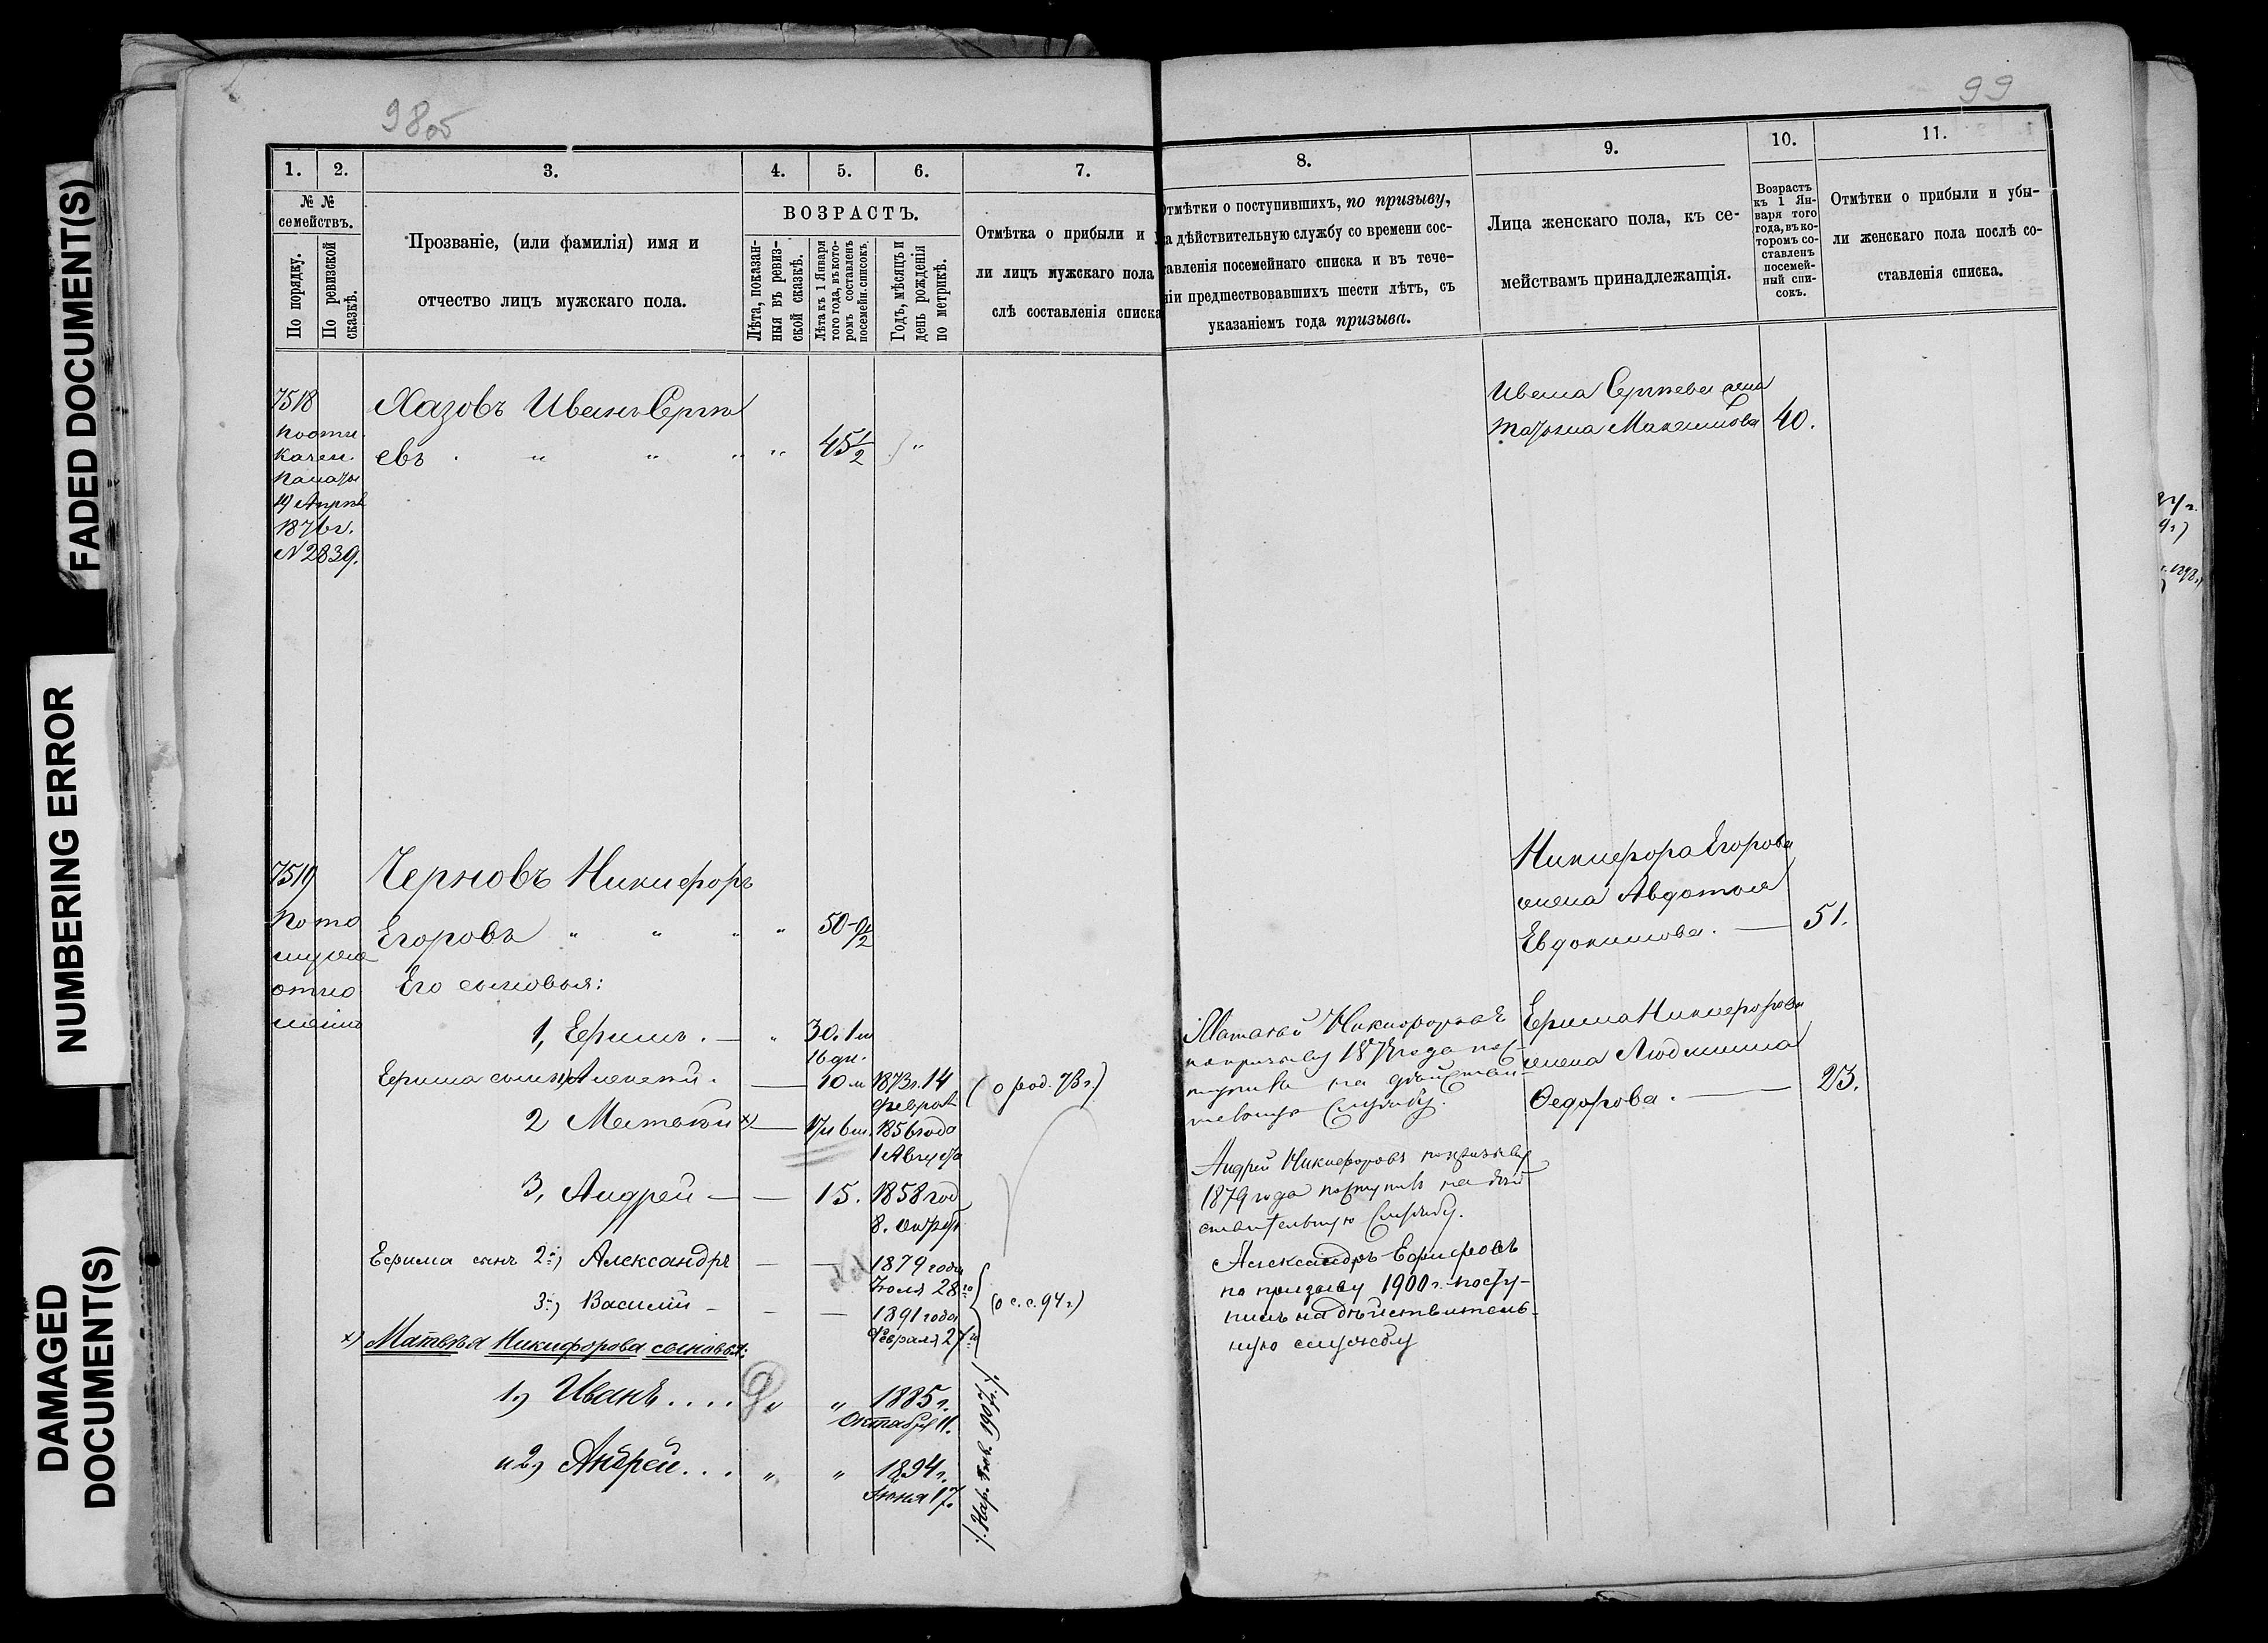 FADED DOCUMENT(S)
NUMBERING ERROR
DAMAGED
DOCUMENT(S)
98об
1.
2.
3.
4.
5.
6.
7.
№ №
семействъ.
По порядку.
По ревизской
сказкѣ.
Прозваніе, (или фамилія) имя и
отчество лицъ мужскаго пола.
ВОЗРАСТЪ.
Лѣта, показан-
ныя въ ревиз-
ской сказкѣ.
Лѣта къ 1 Января
того года, въ кото-
ромъ составленъ
посемейн. списокъ.
Годъ, мѣсяцъ и
день рожденія
по метрикѣ.
Отмѣтка о прибыли и у
ли лицъ мужскаго пола
слѣ составленія списка
7518
Хазовъ Иванъ Сергѣ
евъ
45 1/2
по отн.
Казен.
Палаты
19 Апрѣл
1876 г.
N 2839.
7519
Черновъ Никифоръ
Егоровъ
50 1/2
по то
му же
отно
шенію
Его сыновья:
1, Ефимъ. —
30. 1 м
16 дн.
Ефима сынъ 1) Алексѣй.
10 м
1873 г. 14
Феврал
(о род. 73 г.)
2 Матвѣй х)
17 и 6 м.
1856 года
1 Августа
3, Андрей —
15.
1858 год
8. Октяб
Ефима сынъ 2-й) Александръ
1879 года
Іюля 28 го
3-й) Василій —
1891 года
Февраля 27 го
(о с. с. 94 г.)
х) Матвѣя Никифорова сыновья:
1) Иванъ....
1885 г.
Октября 11.
и 2) Андрей...
1894 г.
Іюня 17.
99
8.
9.
10.
11.
Отмѣтки о поступившихъ, по призыву,
на дѣйствительную службу со времени сос-
тавленія посемейнаго списка и въ тече-
ніи предшествовавшихъ шести лѣтъ, съ
указаніемъ года призыва.
Лица женскаго пола, къ се-
мействамъ принадлежащія.
Возрастъ
къ 1 Ян-
варя того
года, въ ко-
торомъ со-
ставленъ
посемей-
ный спи-
сокъ.
Отмѣтки о прибыли и убы-
ли женскаго пола послѣ со-
ставленія списка.
Ивана Сергѣева жена
Татьяна Максимова
40.
Никифора Егорова
жена Авдотья
Евдокимова. —
51.
Матвѣй Никифоровъ
по призыву 1878 года пос-
тупилъ на дѣйстви-
тельную службу.
Ефима Никифорова
жена Людмила
Ѳедорова. —
23.
Андрей Никифоровъ по призыву
1879 года поступилъ на дѣй
ствительную службу.
Александръ Ефимовъ
по призыву 1900 г. посту-
пилъ на дѣйствитель-
ную службу